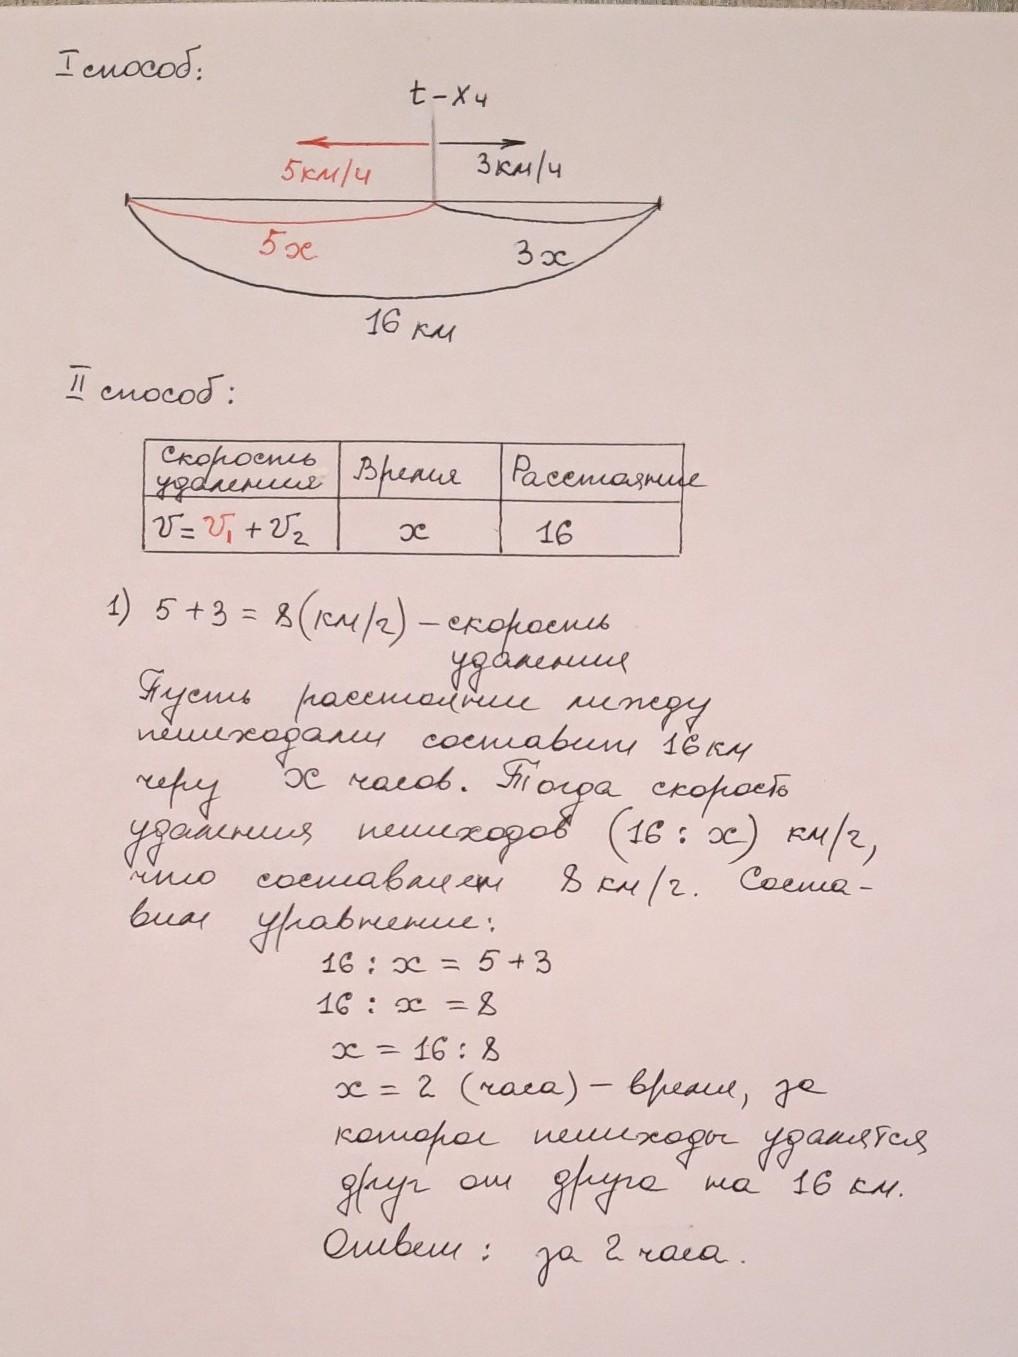 I способ:
t - x ч
5км/ч
3км/ч
5x
3x
16 км
II способ:
Скорость удаления
Время
Расстояние
V = V₁ + V₂
x
16
1) 5 + 3 = 8 (км/ч) – скорость
удаления
Пусть расстояние между
пешеходами составит 16 км
через x часов. Тогда скорость
удаления пешеходов (16 : x) км/ч,
что составляет 8 км/ч. Соста-
вим уравнение:
16 : x = 5 + 3
16 : x = 8
x = 16 : 8
x = 2 (часа) – время, за
которое пешеходы удалятся
друг от друга на 16 км.
Ответ: за 2 часа.